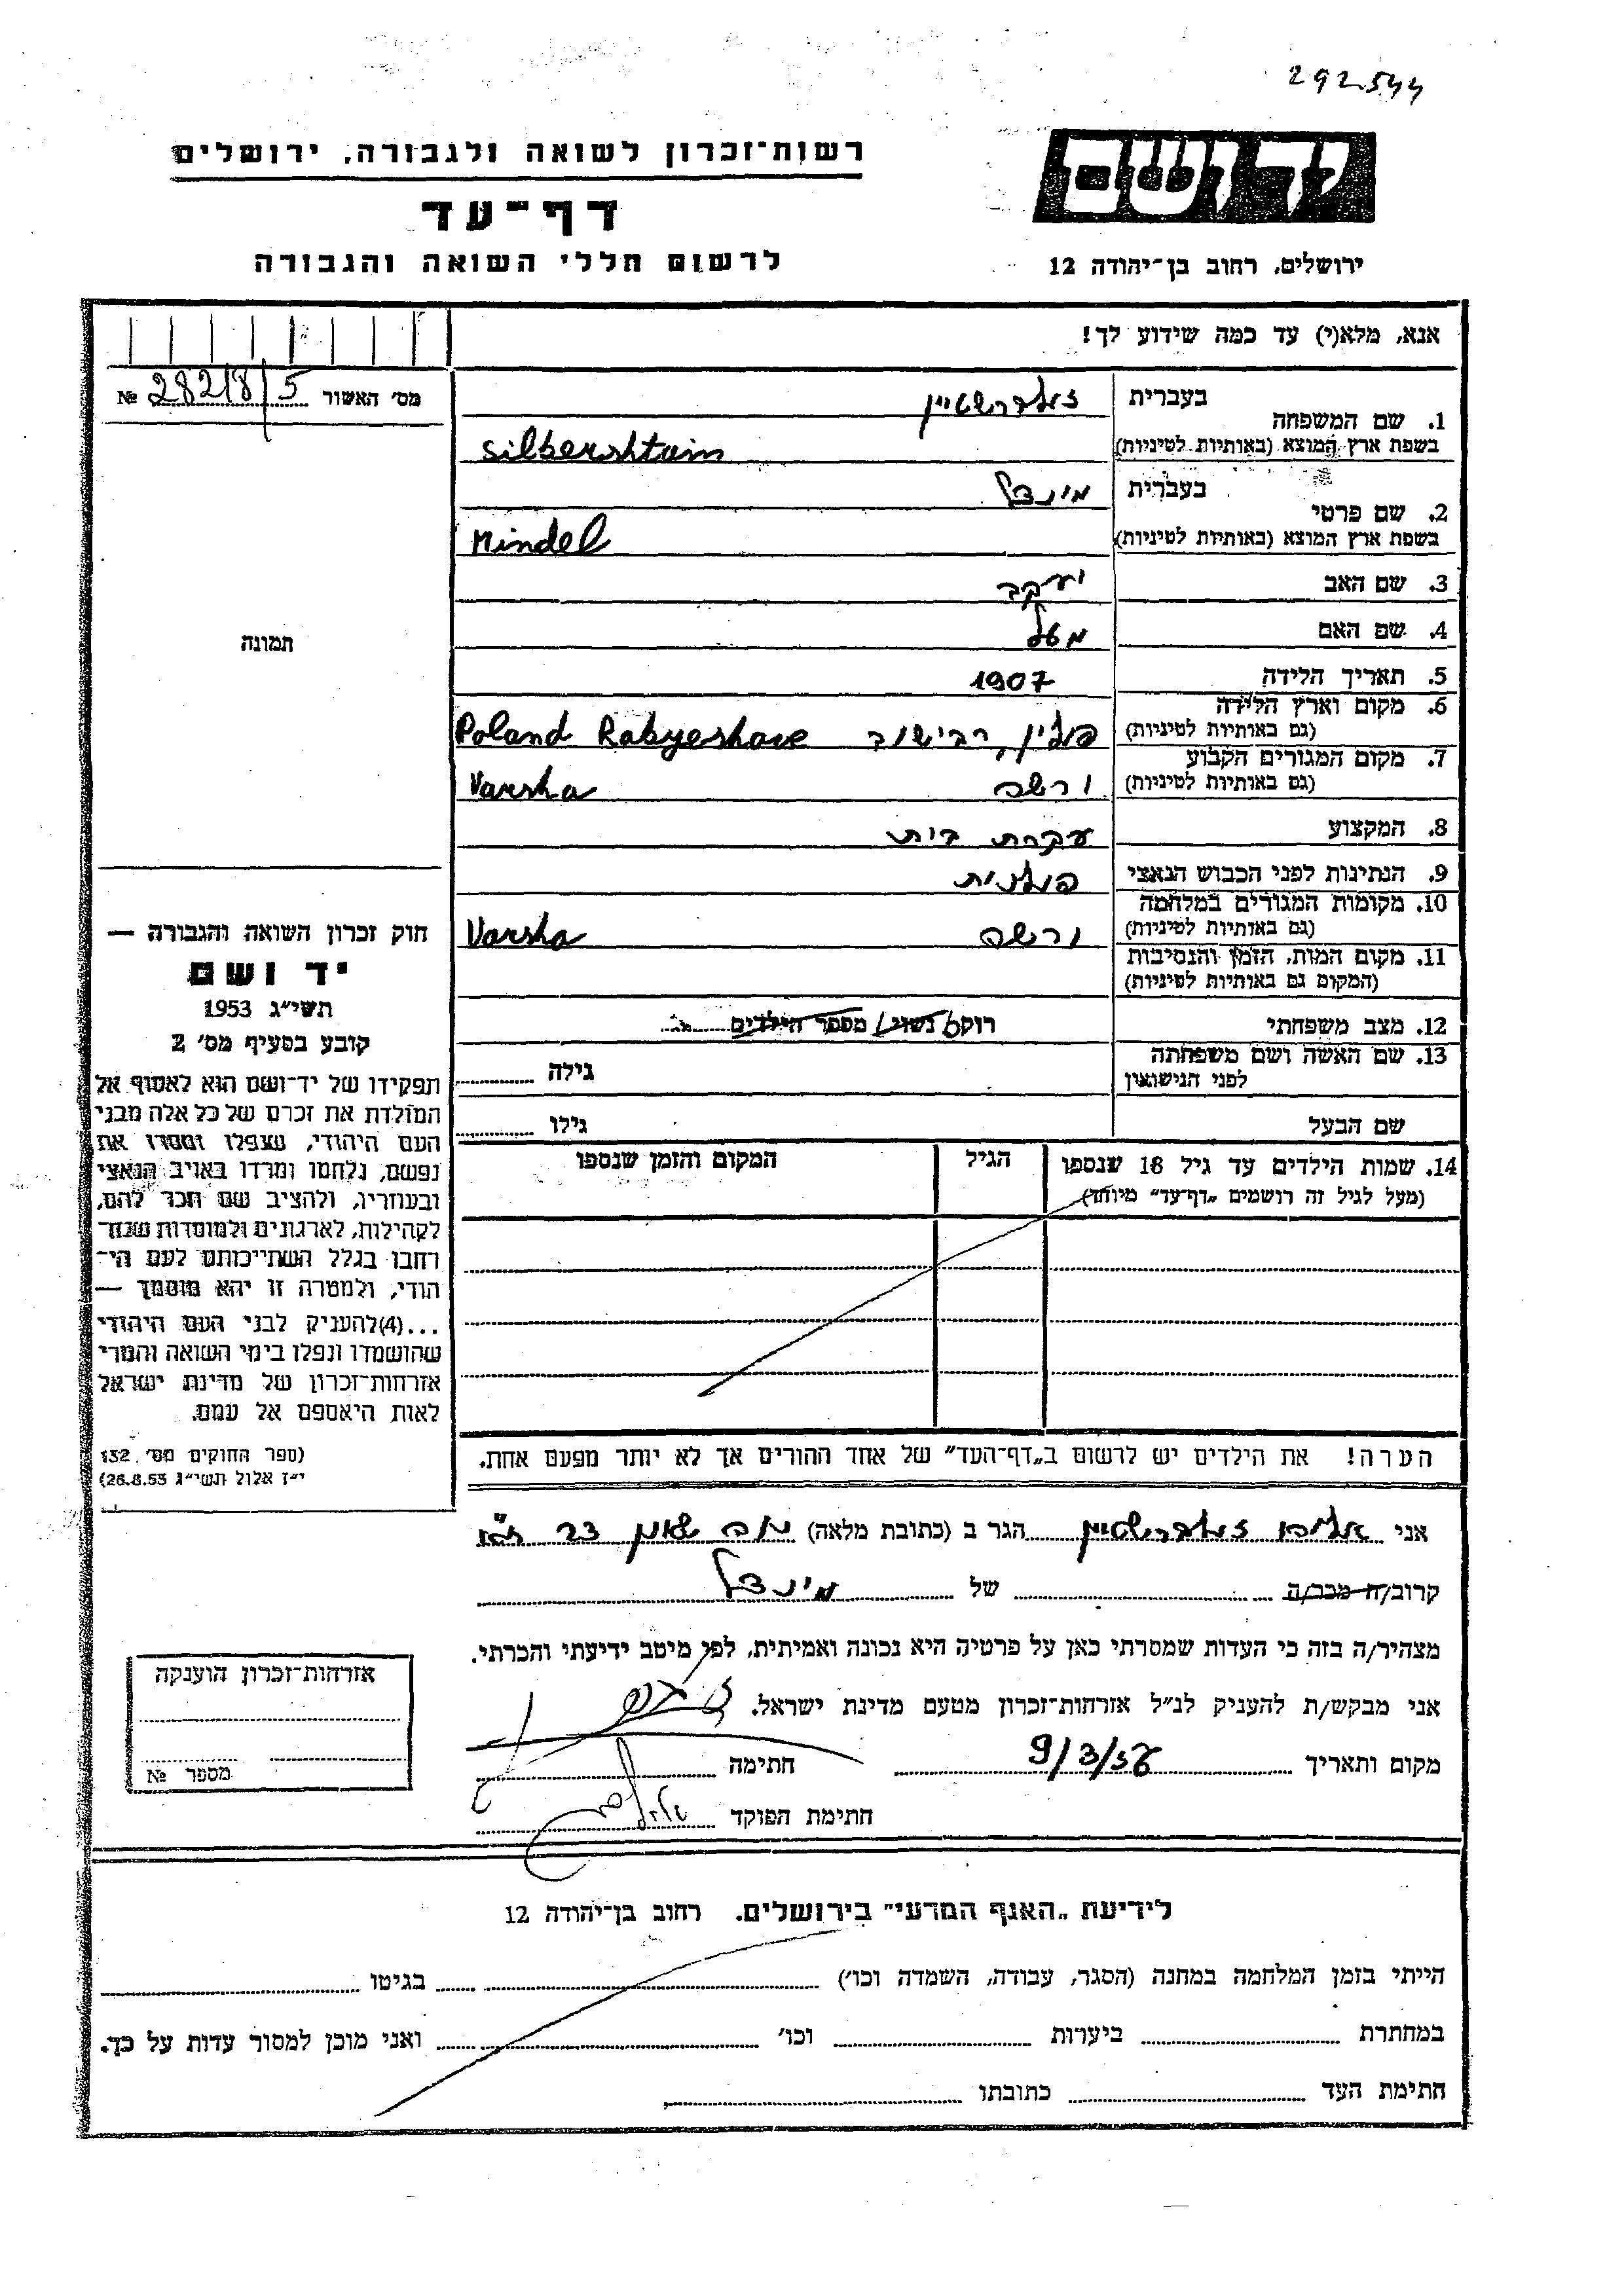 292544
רשות־זכרון לשואה ולגבורה, ירושלים
דף־עד
לרשום חללי השואה והגבורה
יד ושם
ירושלים, רחוב בן־יהודה 12
אנא, מלא(י) עד כמה שידוע לך!
מס׳ האשור 282/8/5 №
תמונה
1. שם המשפחה בעברית זילברשטיין
בשפת ארץ המוצא (באותיות לטיניות) Silbershtain
2. שם פרטי בעברית מינדל
בשפת ארץ המוצא (באותיות לטיניות) Mindel
3. שם האב יעקב
4. שם האם
5. תאריך הלידה 1907
6. מקום וארץ הלידה
(גם באותיות לטיניות) פולין, רבישוב Poland Rabyeshove
7. מקום המגורים הקבוע
(גם באותיות לטיניות) ורשה Varsha
8. המקצוע עקרת בית
9. הנתינות לפני הכבוש הנאצי פולנית
10. מקומות המגורים במלחמה
(גם באותיות לטיניות) ורשה Varsha
11. מקום המות, הזמן והנסיבות
(המקום גם באותיות לטיניות)
12. מצב משפחתי רוק/ נשוי/ מספר הילדים
13. שם האשה ושם משפחתה
לפני הנישואין גילה
שם הבעל גילו
14. שמות הילדים עד גיל 18 שנספו הגיל המקום והזמן שנספו
(מעל לגיל זה רושמים „דף־עד״ מיוחד)
הערה! את הילדים יש לרשום ב„דף־העד״ של אחד ההורים אך לא יותר מפעם אחת.
חוק זכרון השואה והגבורה —
יד ושם
תשי״ג 1953
קובע בסעיף מס׳ 2
תפקידו של יד־ושם הוא לאסוף אל
המולדת את זכרם של כל אלה מבני
העם היהודי, שנפלו ומסרו את
נפשם, נלחמו ומרדו באויב הנאצי
ובעוזריו, ולהציב שם וזכר להם,
לקהילות, לארגונים ולמוסדות שנח־
רבו בגלל השתייכותם לעם הי־
הודי, ולמטרה זו יהא מוסמך —
...(4)להעניק לבני העם היהודי
שהושמדו ונפלו בימי השואה והמרי
אזרחות־זכרון של מדינת ישראל
לאות היאספם אל עמם.
(ספר החוקים מס׳ 132,
י״ז אלול תשי״ג 26.8.53)
אני זילברשטיין הגר ב (כתובת מלאה) 23
קרוב/ה מכר/ה של מינדל
מצהיר/ה בזה כי העדות שמסרתי כאן על פרטיה היא נכונה ואמיתית, לפי מיטב ידיעתי והכרתי.
אני מבקש/ת להעניק לנ״ל אזרחות־זכרון מטעם מדינת ישראל.
מקום ותאריך 9/3/56 חתימה
חתימת הפוקד
אזרחות־זכרון הוענקה
מספר №
לידיעת „האגף המדעי״ בירושלים. רחוב בן־יהודה 12
הייתי בזמן המלחמה במחנה (הסגר, עבודה, השמדה וכו׳) בגיטו
במחתרת ביערות וכו׳ ואני מוכן למסור עדות על כך.
חתימת העד כתובתו